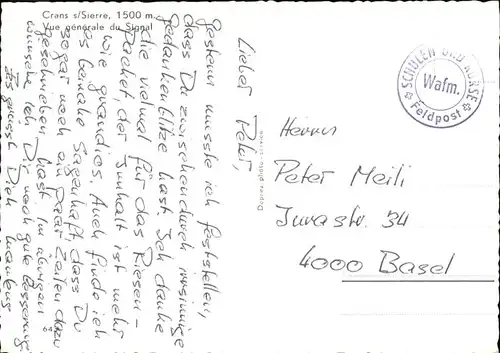 Crans s/Sierre, 1500 m.
Vue générale du Signal
Lieber Peter,
Gestern musste ich feststellen,
dass Du zwischendurch irrsinnige
Gedankenblitze hast. Ich danke
die vielmal für das Riesen-
Packet, der Innhalt ist mehr
wie grandios. Auch finde ich
es beinahe Sagenhaft, dass Du
sogar noch ein paar Zeilen dazu
geschrieben hast. Im übrigen
wünsche ich Dir noch gute Besserung
Es grüsst Dich Markus
64
SCHULEN UND KURSE
Wafm.
Feldpost
Herrn
Peter Meili
Jurastr. 34
4000 Basel